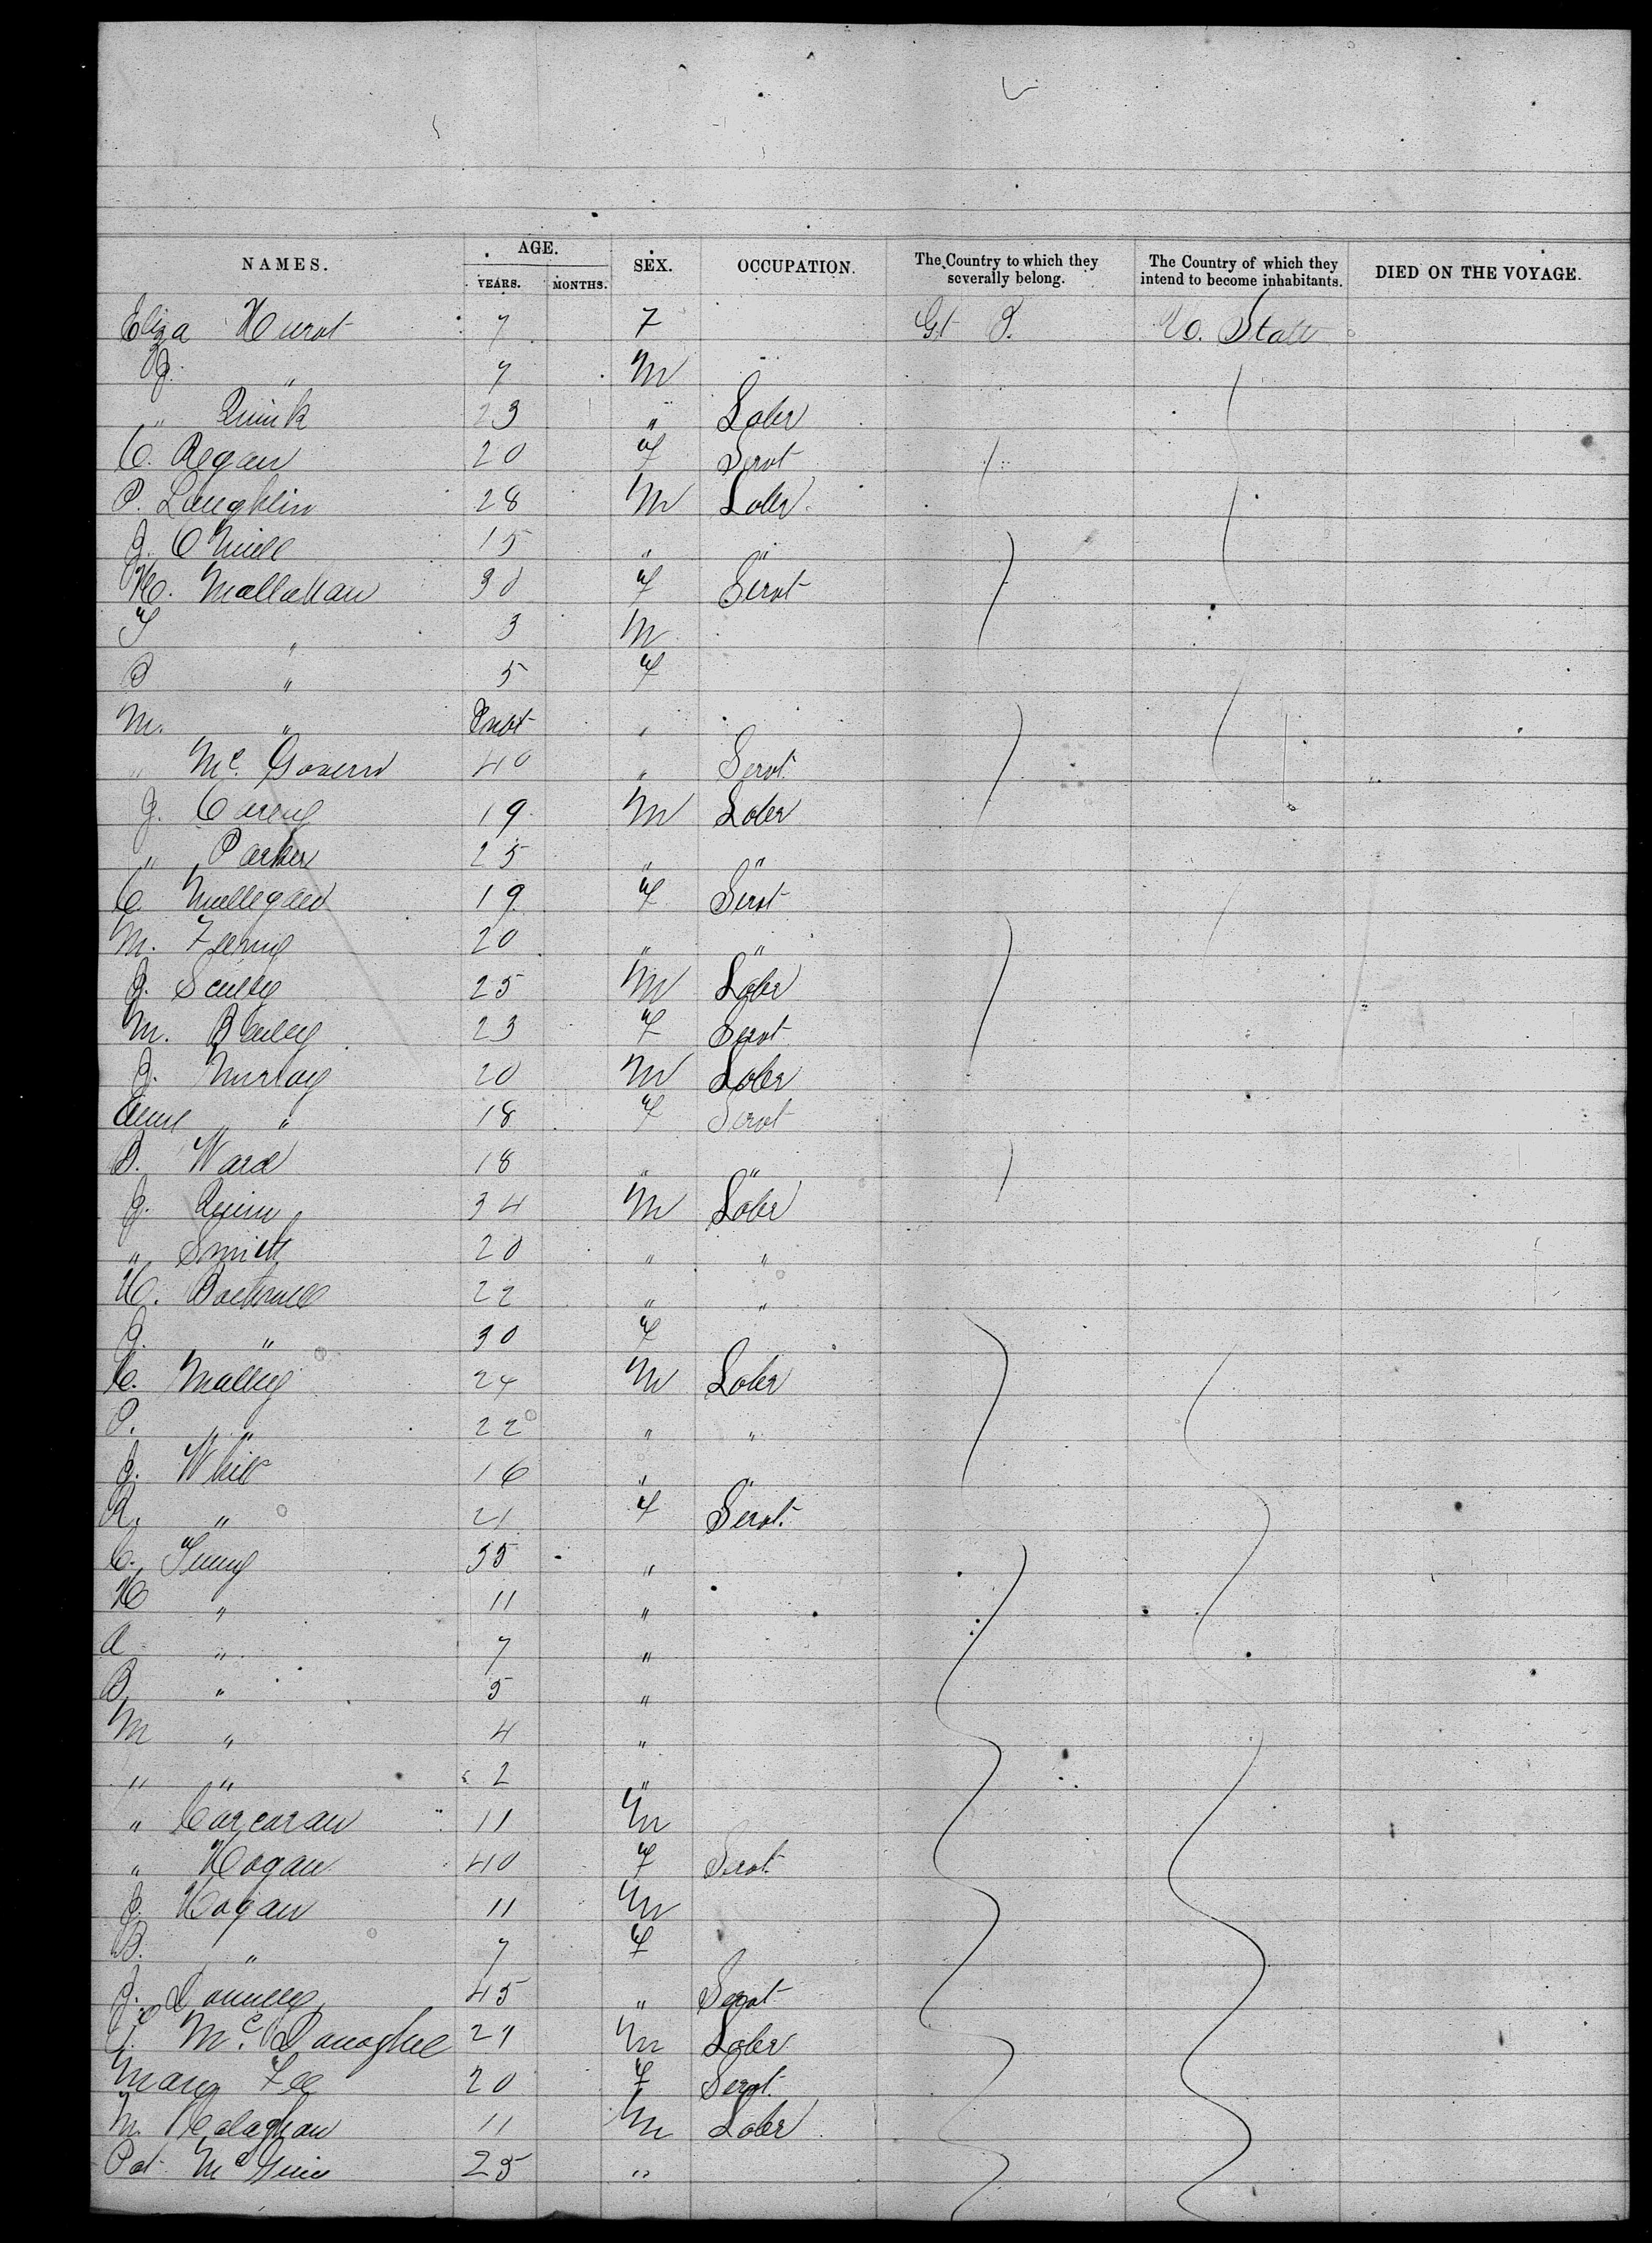 NAMES. AGE. YEARS. MONTHS. SEX. OCCUPATION. The Country to which they severally belong. The Country of which they intend to become inhabitants. DIED ON THE VOYAGE.
Eliza Hurst 7 F Gt B. U. States
J. " 7 M
" Quirk 23 " Laber
C. Regan 20 F Servt
P. Laughlin 28 M Laber
J. O'Neill 15 " "
H. Mallahan 30 F Servt
T " 3 M
B " 5 F
M. " Infnt "
" Mc. Govern 40 " Servt
J. Carey 19 M Laber
" Parker 25 " "
C. Mullegan 19 F Servt
M. Feeny 20 " "
J. Scully 25 M Laber
M. 23 F Servt
J. Murray 20 M Laber
Anne " 18 F Servt
B. Ward 18 " "
J. Quinn 34 M Laber
" Smith 20 " "
H. Bothwell 22 " "
J. " 30 F
C. Malley 24 M Laber
P. " 22 " "
J. White 16 " "
R. " 21 F Servt.
C. 35 "
H " 11 "
A " 7 "
B " 5 "
M " 4 "
" " 2 "
" Corcoran 11 M
" Hogan 40 F Servt
J. Hogan 11 M
B. " 7 F
J. Donnelly 45 " Servt
Mc. Donoghue 21 M Laber
Mary Fee 20 F Servt
M. Calaghan 11 M Laber
Pat Mc 25 "